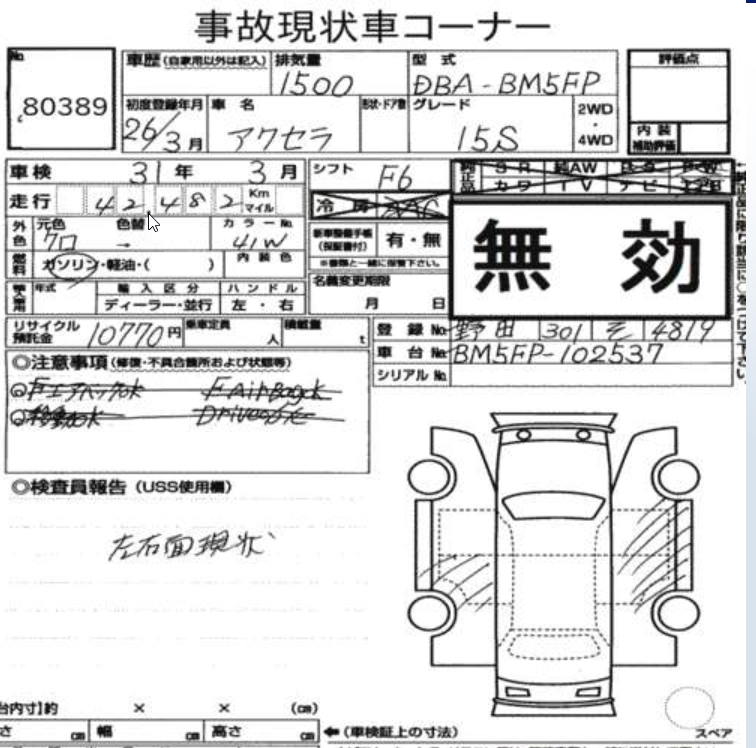 事故現状車コーナー
No.
80389
車歴(自家用以外は記入)
排気量
1500
型式
DBA-BM5FP
評価点
初度登録年月
26/3月
車名
アクセラ
形状・ドア数
グレード
15S
2WD
・
4WD
内装
補助評価
車検 31年 3月
シフト
F6
純正品
SR 純AW PS PW
カワ TV ナビ エアB
走行 42482 Km マイル
冷房 AAC
無効
外色
元色
クロ
色替
→
カラーNo.
41W
新車整備手帳
(保証書付)
有・無
※書類と一緒に保管下さい。
燃料
ガソリン・軽油・( )
内装色
名義変更期限
月 日
輸入車用
年式
輸入区分
ディーラー・並行
ハンドル
左・右
リサイクル
預託金
10770円
乗車定員
人
積載量
t
登録No. 野田 301 そ 4819
車台No. BM5FP-102537
シリアルNo.
◎注意事項(修復・不具合箇所および状態等)
移動ok
◎検査員報告(USS使用欄)
左右面現状
台内寸】約 × × (cm)
さ cm 幅 cm 高さ cm
←(車検証上の寸法)
スペア